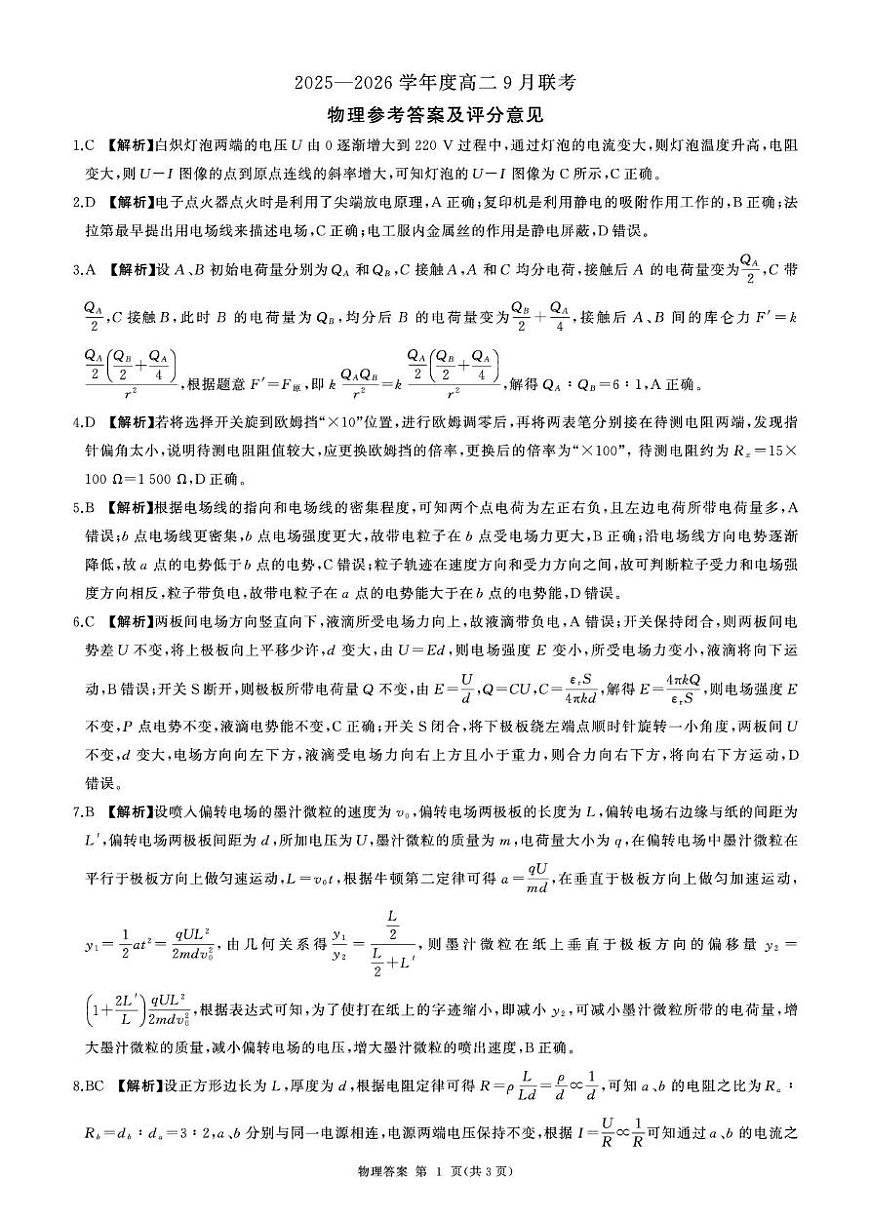 2025—2026 学年度高二 9 月联考
物理参考答案及评分意见
1.C 【解析】白炽灯泡两端的电压 U 由 0 逐渐增大到 220 V 过程中,通过灯泡的电流变大,则灯泡温度升高,电阻
变大,则 U－I 图像的点到原点连线的斜率增大,可知灯泡的 U－I 图像为 C 所示,C 正确。
2.D 【解析】电子点火器点火时是利用了尖端放电原理,A 正确;复印机是利用静电的吸附作用工作的,B 正确;法
拉第最早提出用电场线来描述电场,C 正确;电工服内金属丝的作用是静电屏蔽,D 错误。
3.A 【解析】设 A、B 初始电荷量分别为 Q_A 和 Q_B,C 接触 A,A 和 C 均分电荷,接触后 A 的电荷量变为 Q_A/2,C 带
Q_A/2,C 接触 B,此时 B 的电荷量为 Q_B,均分后 B 的电荷量变为 Q_B/2＋Q_A/4,接触后 A、B 间的库仑力 F′＝k
(Q_A/2)(Q_B/2＋Q_A/4)/r²,根据题意 F′＝F原,即 k Q_AQ_B/r²＝k (Q_A/2)(Q_B/2＋Q_A/4)/r²,解得 Q_A∶Q_B＝6∶1,A 正确。
4.D 【解析】若将选择开关旋到欧姆挡“×10”位置,进行欧姆调零后,再将两表笔分别接在待测电阻两端,发现指
针偏角太小,说明待测电阻阻值较大,应更换欧姆挡的倍率,更换后的倍率为“×100”, 待测电阻约为 R_x＝15×
100 Ω＝1 500 Ω,D 正确。
5.B 【解析】根据电场线的指向和电场线的密集程度,可知两个点电荷为左正右负,且左边电荷所带电荷量多,A
错误;b 点电场线更密集,b 点电场强度更大,故带电粒子在 b 点受电场力更大,B 正确;沿电场线方向电势逐渐
降低,故 a 点的电势低于 b 点的电势,C 错误;粒子轨迹在速度方向和受力方向之间,故可判断粒子受力和电场强
度方向相反,粒子带负电,故带电粒子在 a 点的电势能大于在 b 点的电势能,D 错误。
6.C 【解析】两板间电场方向竖直向下,液滴所受电场力向上,故液滴带负电,A 错误;开关保持闭合,则两板间电
势差 U 不变,将上极板向上平移少许,d 变大,由 U＝Ed,则电场强度 E 变小,所受电场力变小,液滴将向下运
动,B 错误;开关 S 断开,则极板所带电荷量 Q 不变,由 E＝U/d,Q＝CU,C＝ε_rS/4πkd,解得 E＝4πkQ/ε_rS,则电场强度 E
不变,P 点电势不变,液滴电势能不变,C 正确;开关 S 闭合,将下极板绕左端点顺时针旋转一小角度,两板间 U
不变,d 变大,电场方向向左下方,液滴受电场力向右上方且小于重力,则合力向右下方,将向右下方运动,D
错误。
7.B 【解析】设喷入偏转电场的墨汁微粒的速度为 v₀,偏转电场两极板的长度为 L,偏转电场右边缘与纸的间距为
L′,偏转电场两极板间距为 d,所加电压为 U,墨汁微粒的质量为 m,电荷量大小为 q,在偏转电场中墨汁微粒在
平行于极板方向上做匀速运动,L＝v₀t,根据牛顿第二定律可得 a＝qU/md,在垂直于极板方向上做匀加速运动,
y₁＝1/2 at²＝qUL²/2mdv₀²,由几何关系得 y₁/y₂＝(L/2)/(L/2＋L′),则墨汁微粒在纸上垂直于极板方向的偏移量 y₂＝
(1＋2L′/L) qUL²/2mdv₀²,根据表达式可知,为了使打在纸上的字迹缩小,即减小 y₂,可减小墨汁微粒所带的电荷量,增
大墨汁微粒的质量,减小偏转电场的电压,增大墨汁微粒的喷出速度,B 正确。
8.BC 【解析】设正方形边长为 L,厚度为 d,根据电阻定律可得 R＝ρ L/Ld＝ρ/d∝1/d,可知 a、b 的电阻之比为 R_a∶
R_b＝d_b∶d_a＝3∶2,a、b 分别与同一电源相连,电源两端电压保持不变,根据 I＝U/R∝1/R 可知通过 a、b 的电流之
物理答案 第 1 页(共 3 页)